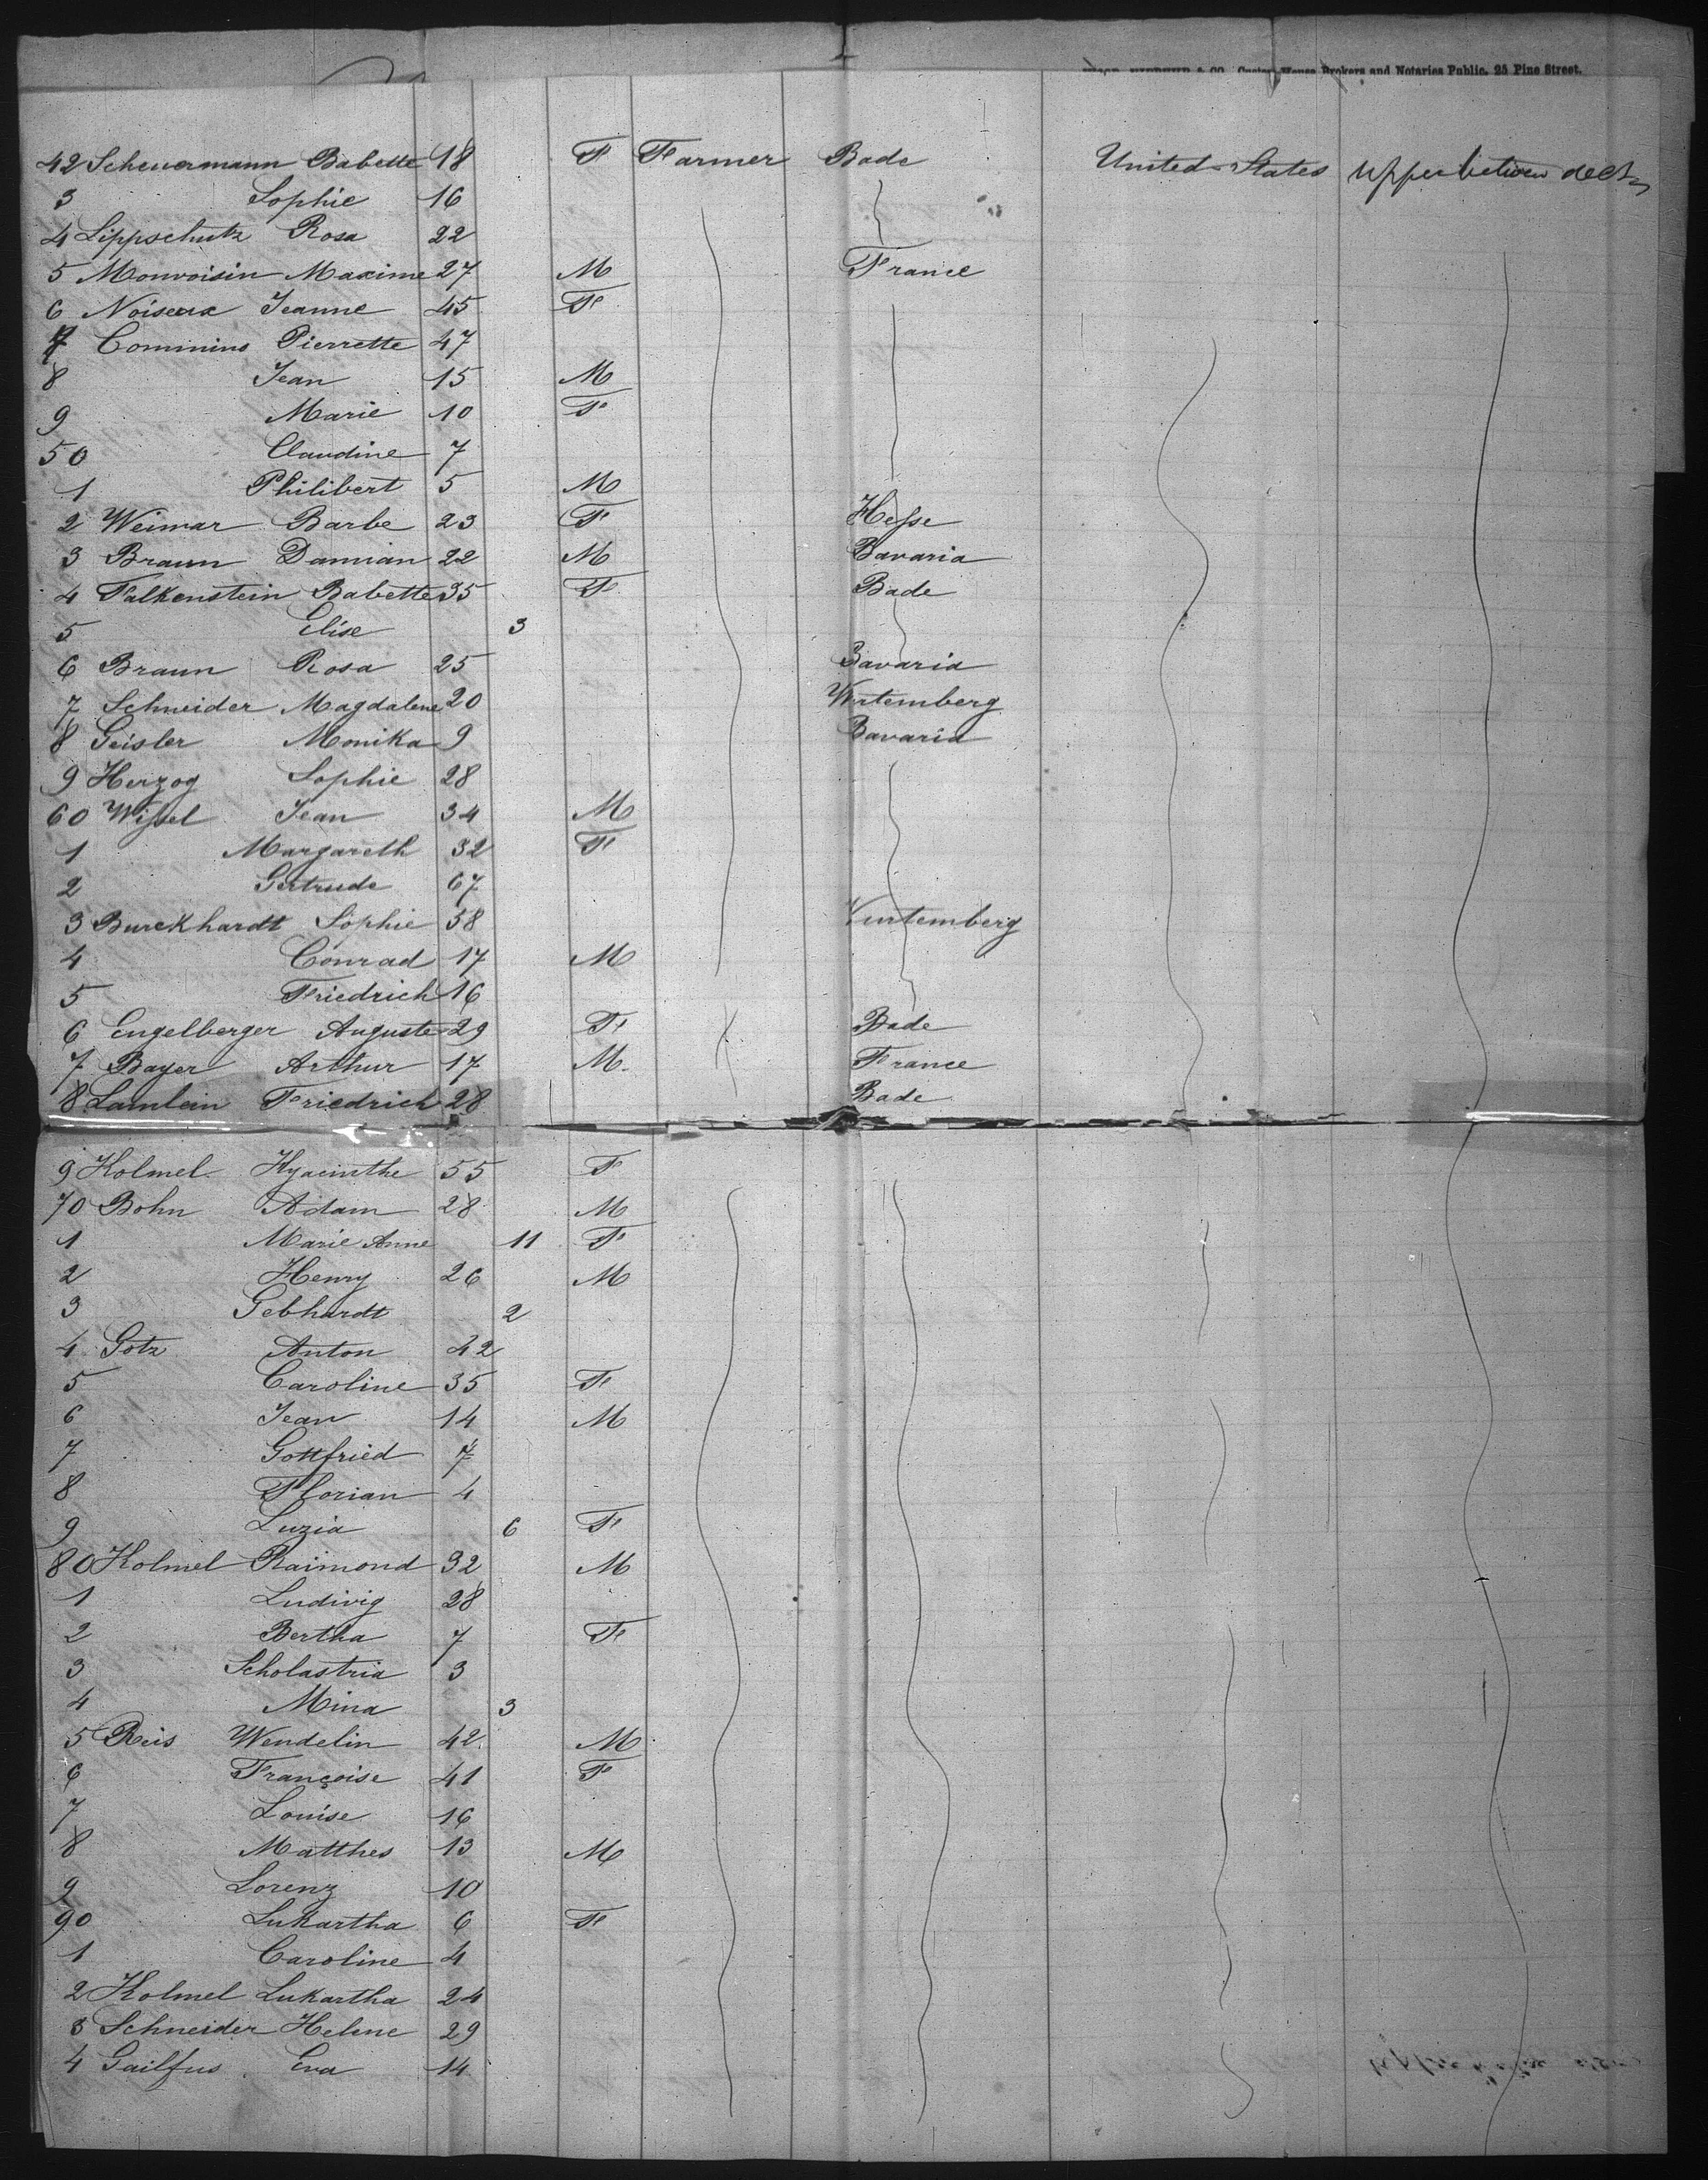 & CO. Custom House Brokers and Notaries Public, 25 Pine Street.
42 Scheuermann Babette 18 F Farmer Bade United States Upper between decks
3 Sophie 16
4 Lippschutz Rosa 22
5 Monvoisin Maxime 27 M France
6 Noiseux Jeanne 45 F
7 Commins Pierrette 47
8 Jean 15 M
9 Marie 10 F
50 Claudine 7
1 Philibert 5 M
2 Weimar Barbe 23 F Hesse
3 Braun Damian 22 M Bavaria
4 Falkenstein Babette 35 F Bade
5 Elise 3
6 Braun Rosa 25 Bavaria
7 Schneider Magdalene 20 Wurtemberg
8 Geisler Monika 9 Bavaria
9 Herzog Sophie 28
60 Wissel Jean 34 M
1 Margareth 32 F
2 Gertrude 67
3 Burckhardt Sophie 58 Wurtemberg
4 Conrad 17 M
5 Friedrich 16
6 Engelberger Auguste 29 F Bade
7 Bayer Arthur 17 M France
8 Lamlein Friedrich 28 Bade
9 Kolmel Hyacinthe 55 F
70 Bohn Adam 28 M
1 Marie Anne 11 F
2 Henry 26 M
3 Gebhardt 2
4 Gotz Anton 42
5 Caroline 35 F
6 Jean 14 M
7 Gottfried 7
8 Florian 4
9 Luzia 6 F
80 Kolmel Raimond 32 M
1 Ludivig 28
2 Bertha 7 F
3 Scholastria 3
4 Mina 3
5 Reis Wendelin 42 M
6 Françoise 41 F
7 Louise 16
8 Matthes 13 M
9 Lorenz 10
90 Lukartha 6 F
1 Caroline 4
2 Kolmel Lukartha 24
3 Schneider Helene 29
4 Gailfus Eva 14